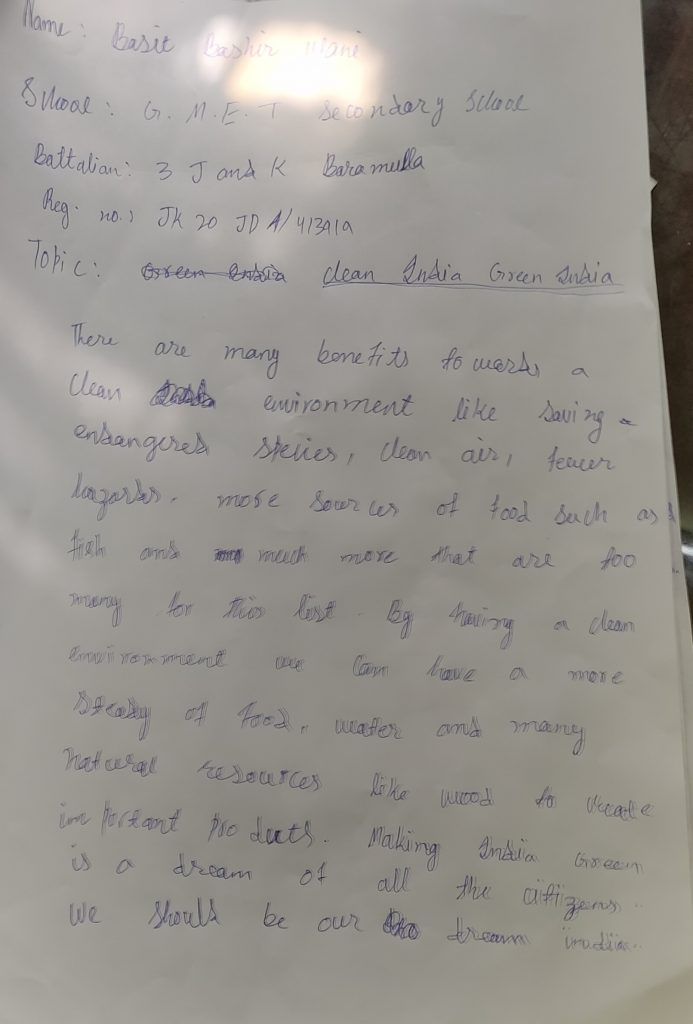 Name: Basit Bashir Wani
School: G. M. E. T Secondary School
Battalian: 3 J and K Baramulla
Reg. no.: JK 20 JD A/413919
Topic: Green India clean India Green India
There are many benefits towards a
clean environment like saving
endangered species, clean air, fewer
hazards. more sources of food such as
fish and much more that are too
many for this list. By having a clean
environment we can have a more
steady of food, water and many
natural resources like wood to create
important products. Making India Green
is a dream of all the citizens.
We should be our dream india.